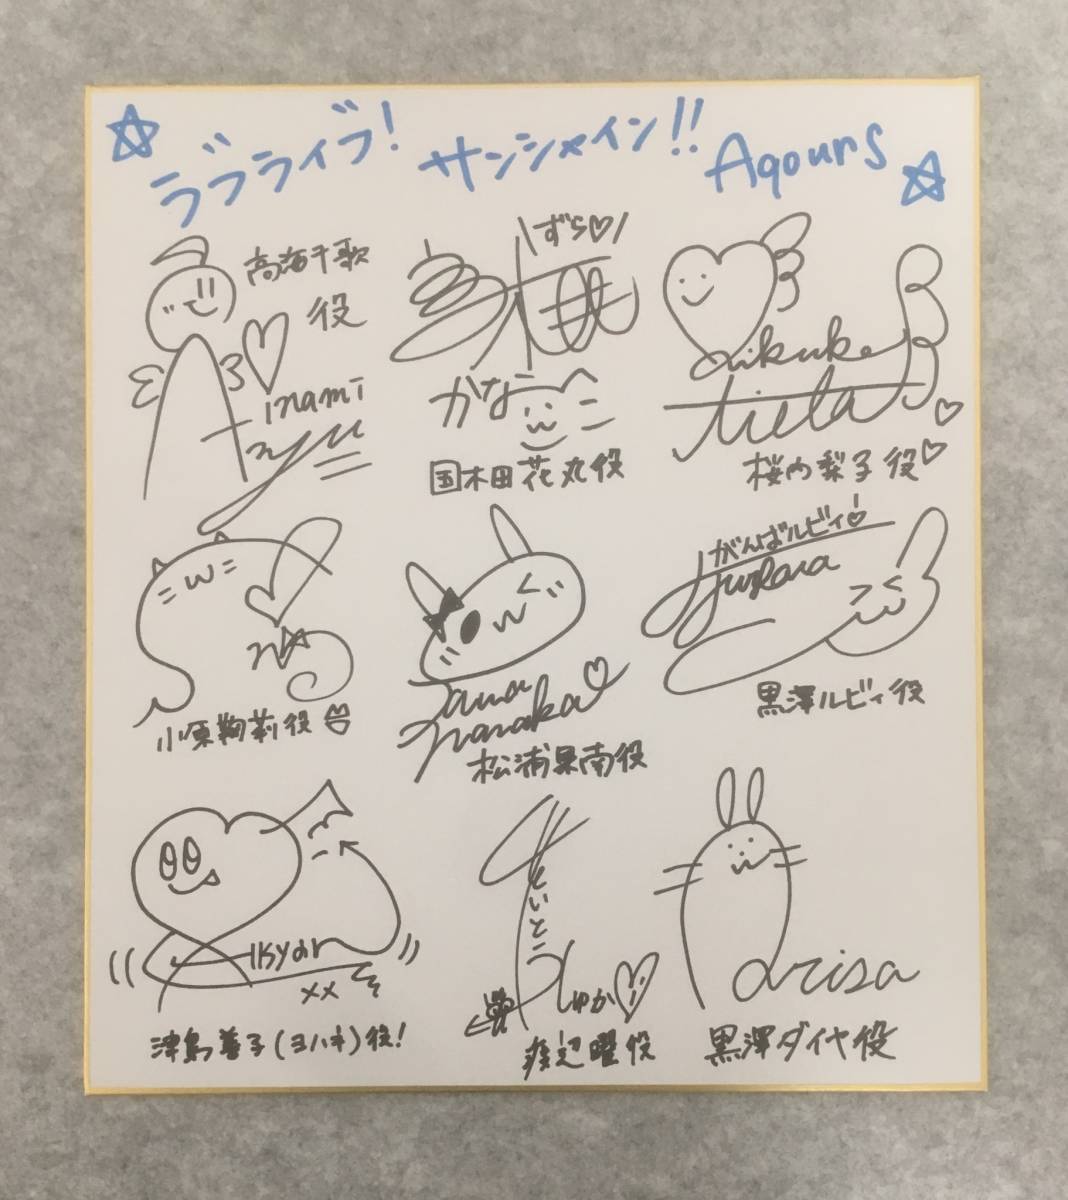 ラブライブ! サンシャイン!! Aqours
高海千歌
役
Inami
Anju
ずら♡
かなこ
国木田花丸役
Aikyk
Rikako
桜内梨子役♡
小原鞠莉役
Suwa
Nanaka
松浦果南役
がんばルビィ
furihata
黒澤ルビィ役
Aikyan
xx
津島善子(ヨハネ)役!
さいとう
しゅか
渡辺曜役
Arisa
黒澤ダイヤ役